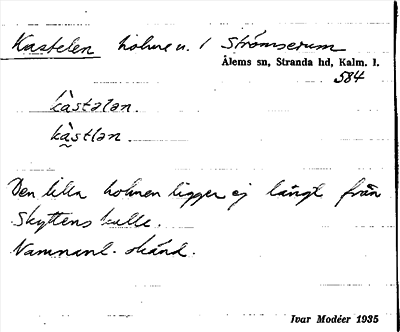 Kastelen holme n. l Strömserum
Ålems sn, Stranda hd, Kalm. l.
584
kàstələn.
kàstlən.
Den lilla holmen ligger ej långt från
Skyttens kulle.
Namnanl. okänd.
Ivar Modéer 1935